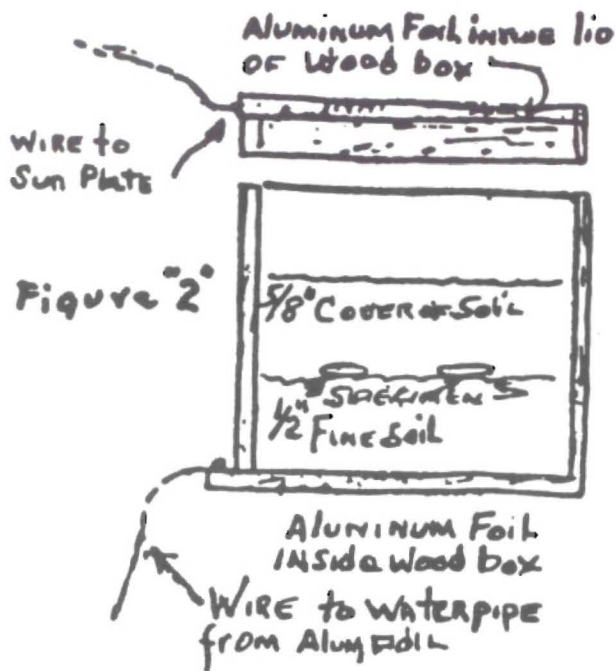 Aluminum Foil inside lid
of Wood box
Wire to
Sun Plate
Figure "2"
5/8" Cover of Soil
Specimen
1/2" Fine Soil
Aluminum Foil
Inside Wood box
Wire to Waterpipe
from Alum